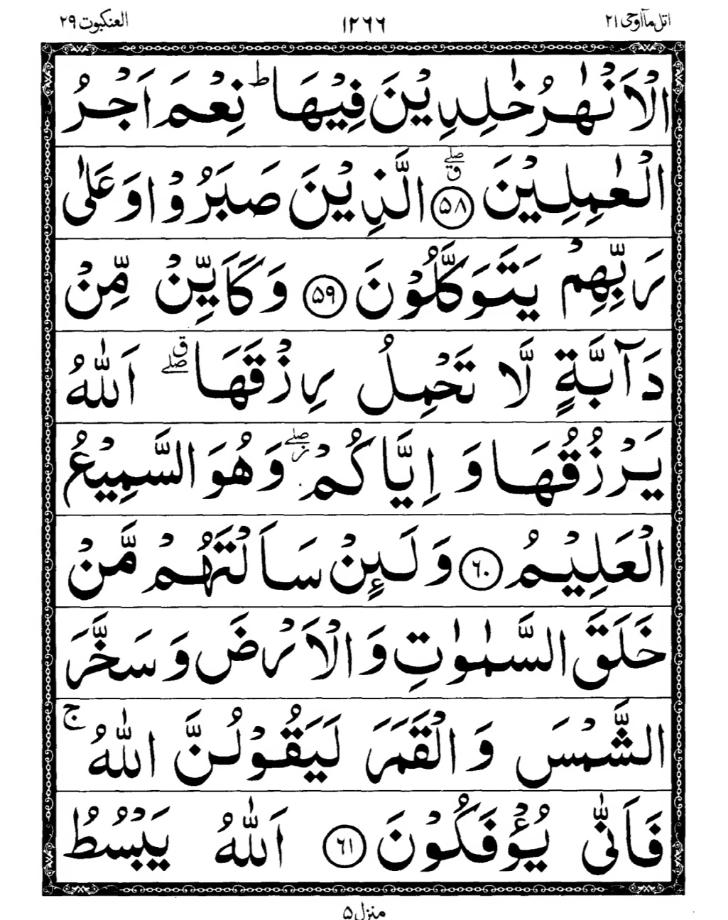 اتل مآ اوحی ۲۱ ۱۲۶۶ العنكبوت ۲۹
الْاَنْهٰرُ خٰلِدِيْنَ فِيْهَا ؕ نِعْمَ اَجْرُ
الْعٰمِلِيْنَ ۖۗ ﴿۵۸﴾ الَّذِيْنَ صَبَرُوْا وَ عَلٰى
رَبِّهِمْ يَتَوَكَّلُوْنَ ﴿۵۹﴾ وَ كَاَيِّنْ مِّنْ
دَآبَّةٍ لَّا تَحْمِلُ رِزْقَهَا ۗۖ اَللّٰهُ
يَرْزُقُهَا وَ اِيَّاكُمْ ۖز وَ هُوَ السَّمِيْعُ
الْعَلِيْمُ ﴿۶۰﴾ وَ لَئِنْ سَاَلْتَهُمْ مَّنْ
خَلَقَ السَّمٰوٰتِ وَ الْاَرْضَ وَ سَخَّرَ
الشَّمْسَ وَ الْقَمَرَ لَيَقُوْلُنَّ اللّٰهُ ۚ
فَاَنّٰى يُؤْفَكُوْنَ ﴿۶۱﴾ اَللّٰهُ يَبْسُطُ
منزل ۵